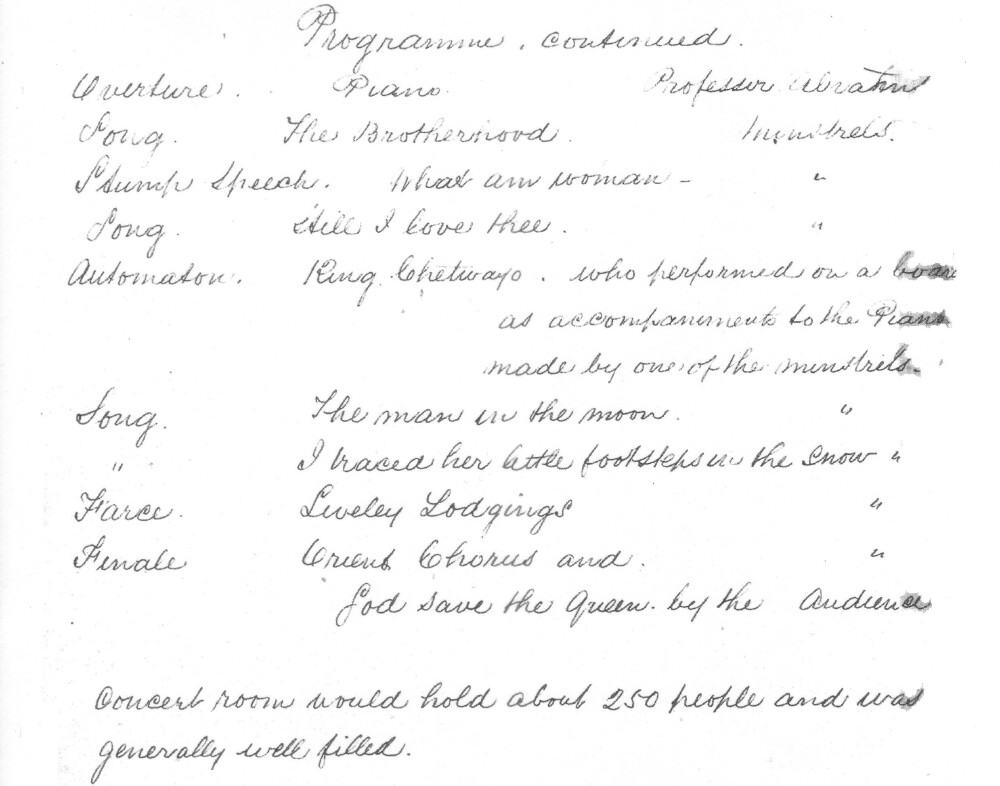 Programme. continued.
Overture. Piano. Professor
Song. The Brotherhood. Minstrels.
Stump Speech. What am woman - "
Song. Still I love thee. "
Automaton. King Chetwayo. who performed on a
as accompaniments to the Piano
made by one of the minstrels.
Song. The man in the moon. "
" I traced her little footsteps in the Snow "
Farce. Liveley Lodgings "
Finale Orient Chorus and. "
God save the Queen. by the Audience
Concert room would hold about 250 people and was
generally well filled.